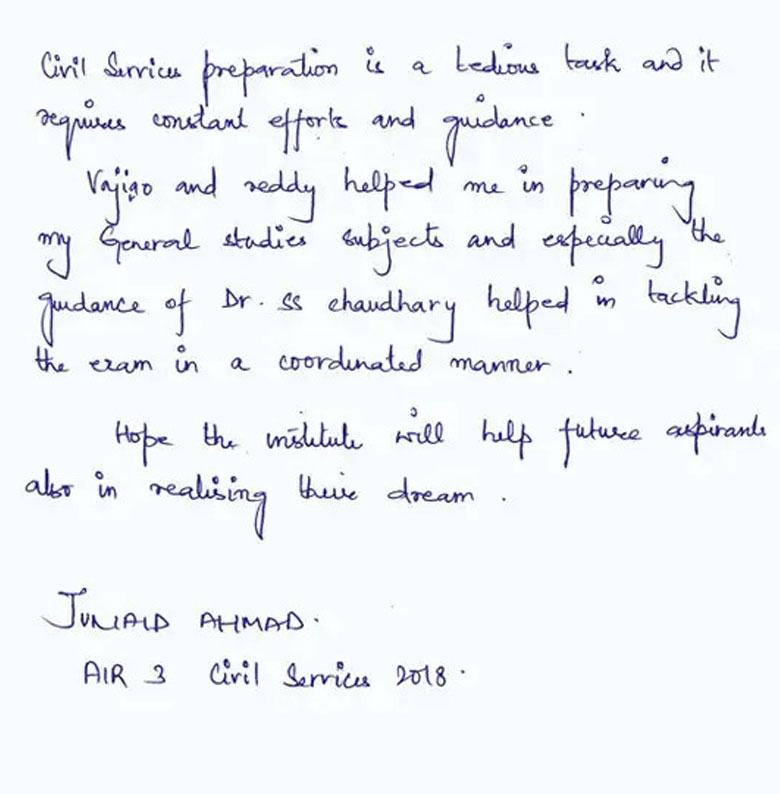 Civil Services preparation is a tedious task and it
requires constant efforts and guidance .
Vajigo and reddy helped me in preparing
my General studies subjects and especially the
guidance of Dr. SS chaudhary helped in tackling
the exam in a coordinated manner .
Hope the institute will help future aspirants
also in realising their dream .
JUNAID AHMAD.
AIR 3 Civil Services 2018 .